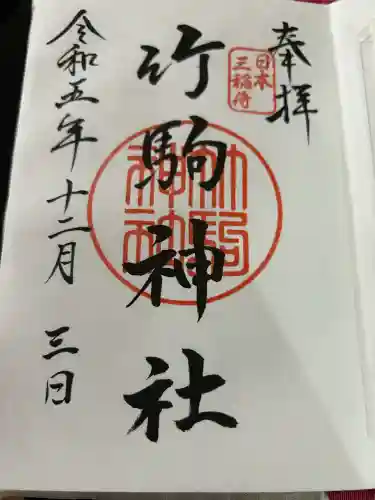 奉拝
日本
三稲荷
竹駒神社
竹駒
神社
令和五年十二月三日